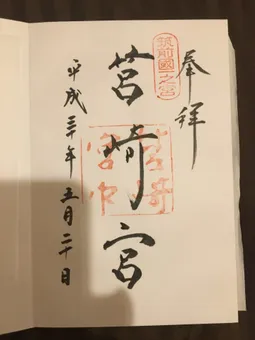 奉拝
筑前國一之宮
筥崎宮
平成三十年五月二十日